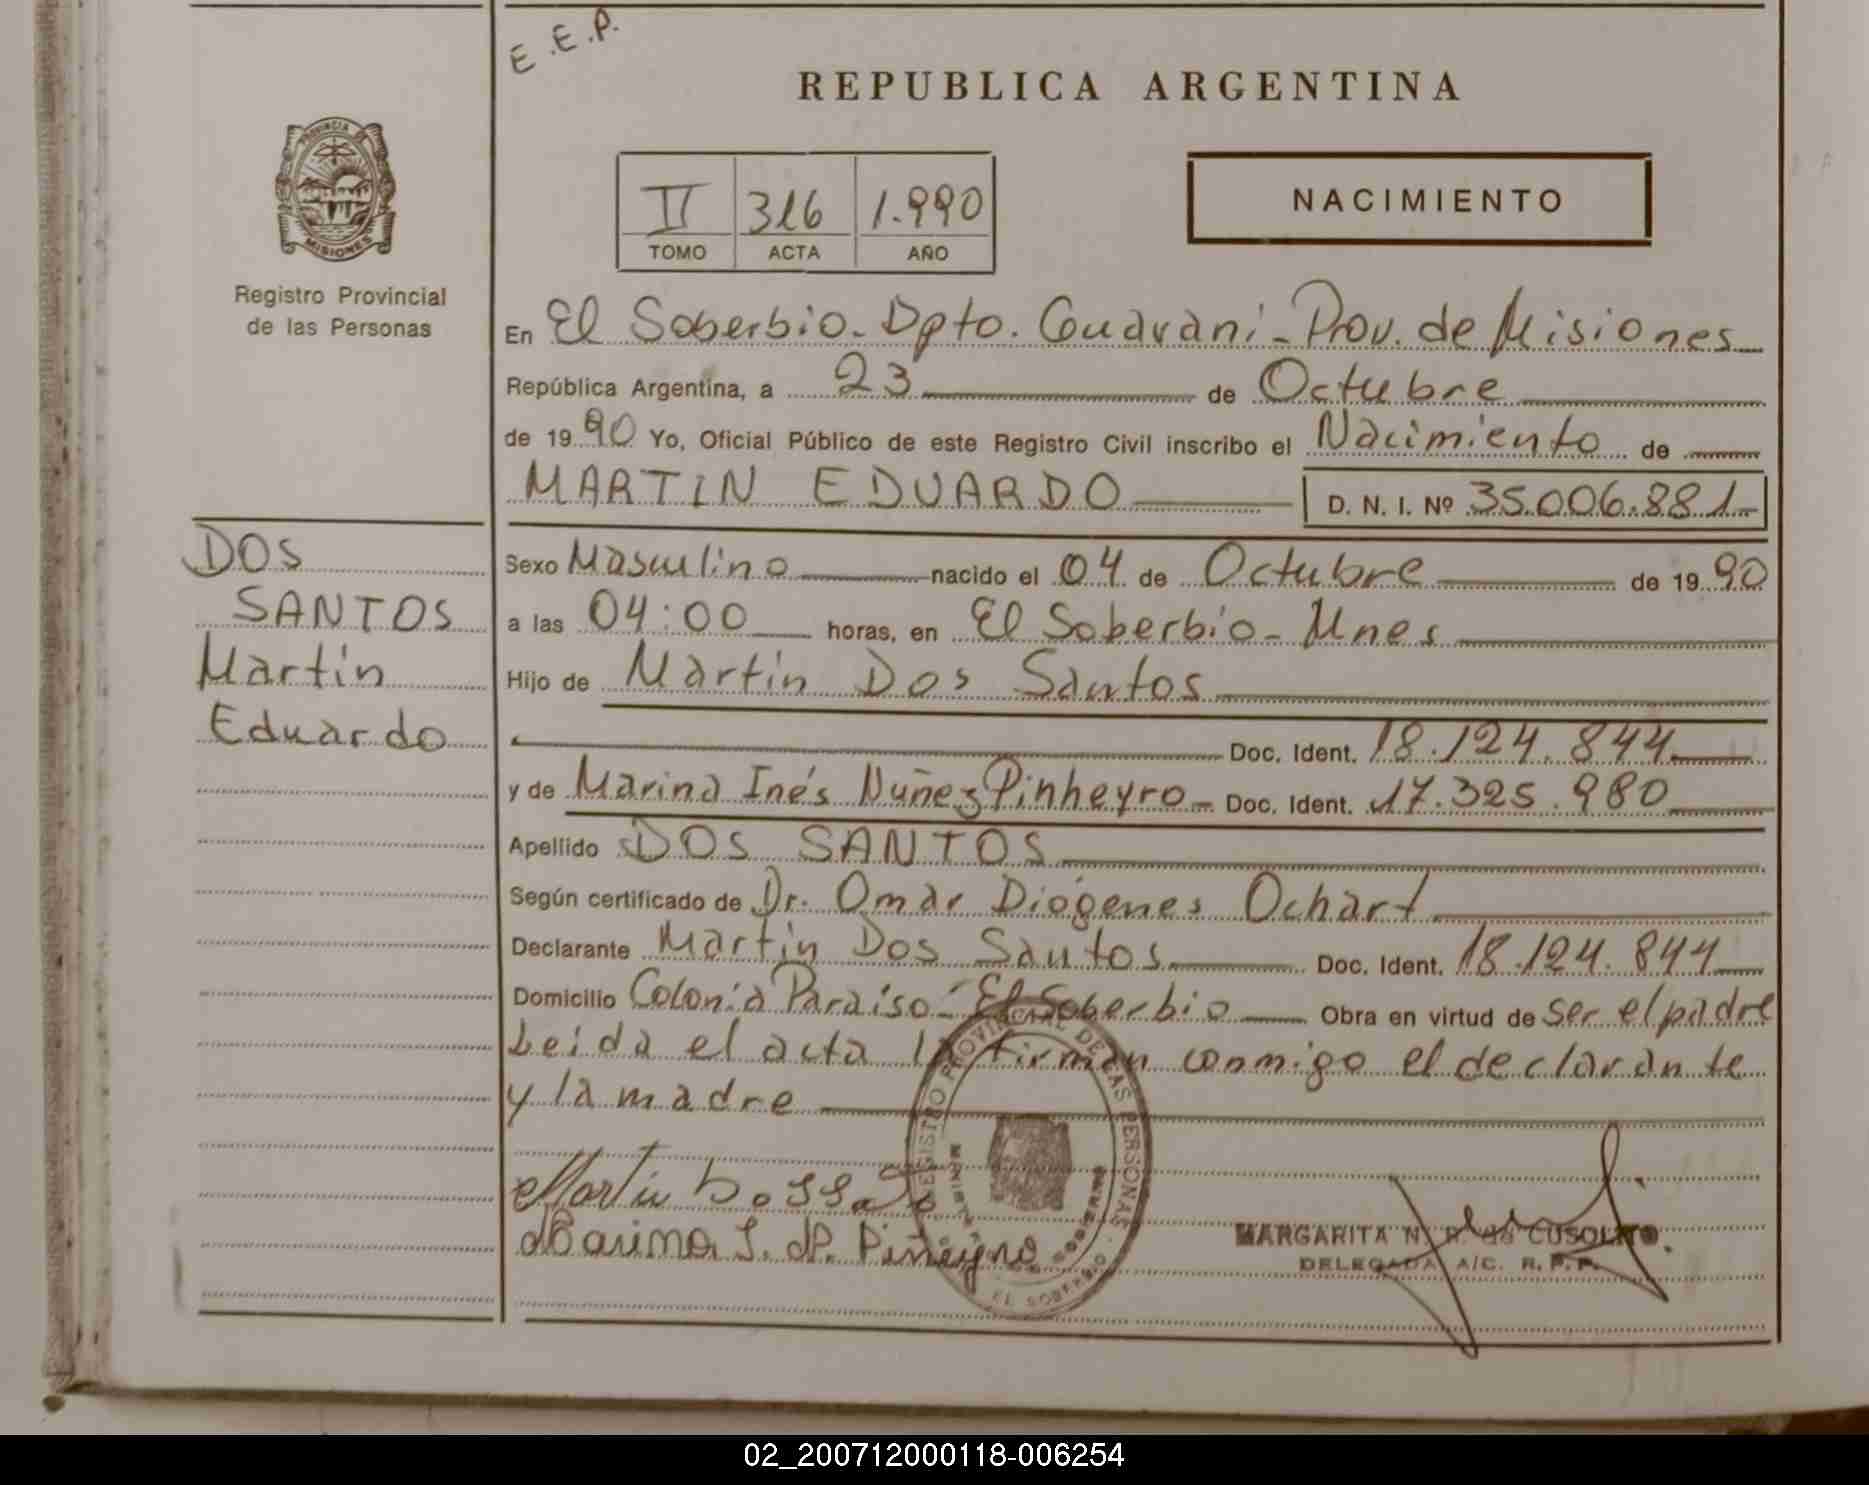 E.E.P.
REPUBLICA ARGENTINA
PROVINCIA DE
MISIONES
Registro Provincial
de las Personas
II 316 1.990
TOMO ACTA AÑO
NACIMIENTO
En El Soberbio - Dpto. Guarani - Prov. de Misiones
República Argentina, a 23 de Octubre
de 1990 Yo, Oficial Público de este Registro Civil inscribo el Nacimiento de
MARTIN EDUARDO D. N. I. Nº 35.006.881-
DOS
SANTOS
Martin
Eduardo
Sexo Masculino nacido el 04 de Octubre de 1990
a las 04:00 horas, en El Soberbio - Mnes
Hijo de Martin Dos Santos
Doc. Ident. 18.124.844
y de Marina Inés Nuñez Pinheyro - Doc. Ident. 17.325.980
Apellido DOS SANTOS
Según certificado de Dr. Omar Diógenes Ochart
Declarante Martin Dos Santos Doc. Ident. 18.124.844
Domicilio Colonia Paraiso - El Soberbio Obra en virtud de ser el padre
Leida el acta la firman conmigo el declarante
y la madre
REGISTRO PROVINCIAL DE LAS PERSONAS
EL SOBERBIO
Martin
Marina
MARGARITA N. R. de CUSOLITO
DELEGADA A/C. R. P. P.
02_200712000118-006254